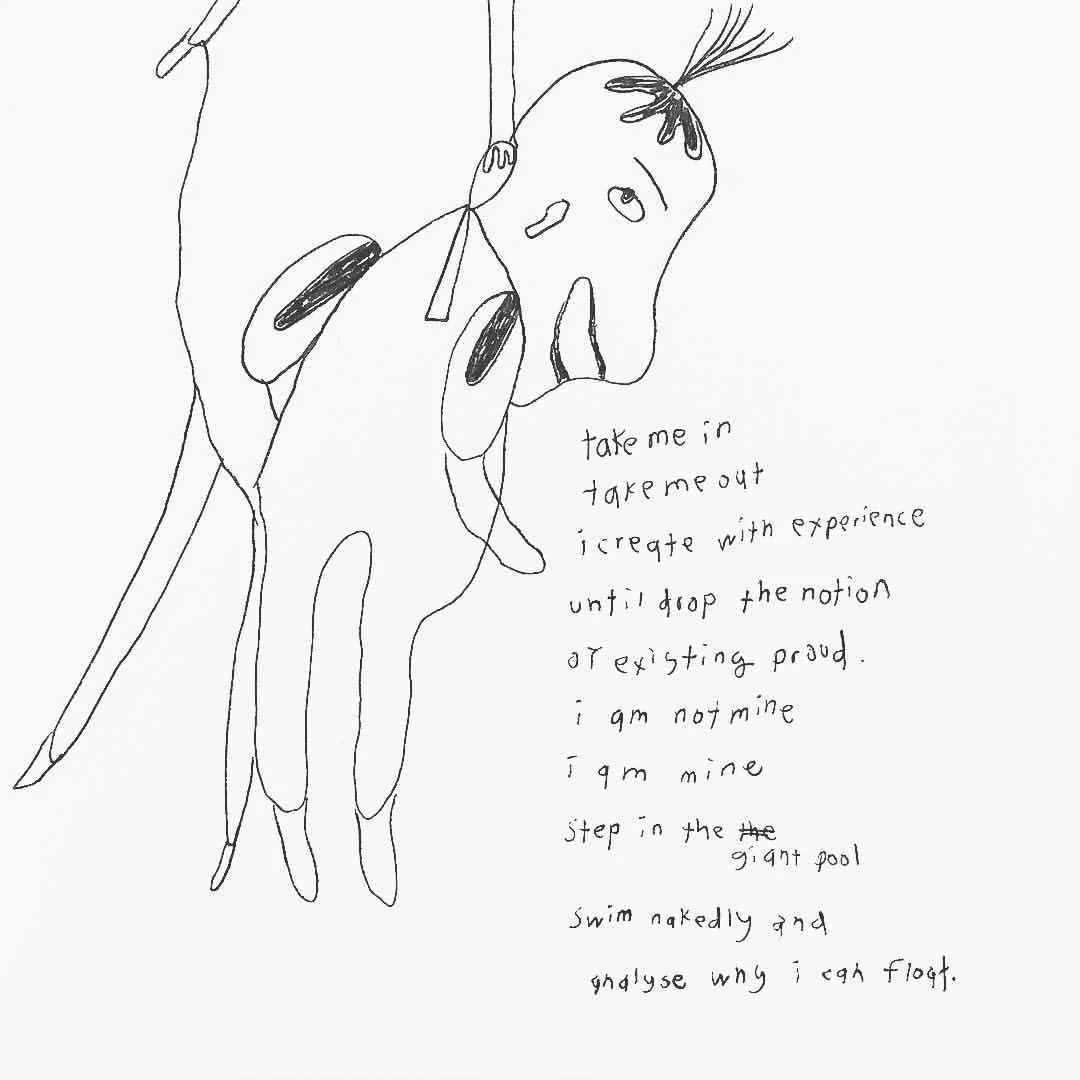 take me in
take me out
i create with experience
until drop the notion
of existing proud.
i am not mine
i am mine
step in the the
giant pool
swim nakedly and
analyse why i can float.